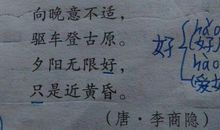 向晚意不适，
驱车登古原。
夕阳无限好，
只是近黄昏。
（唐·李商隐）
好 { hǎo
(好)
hào